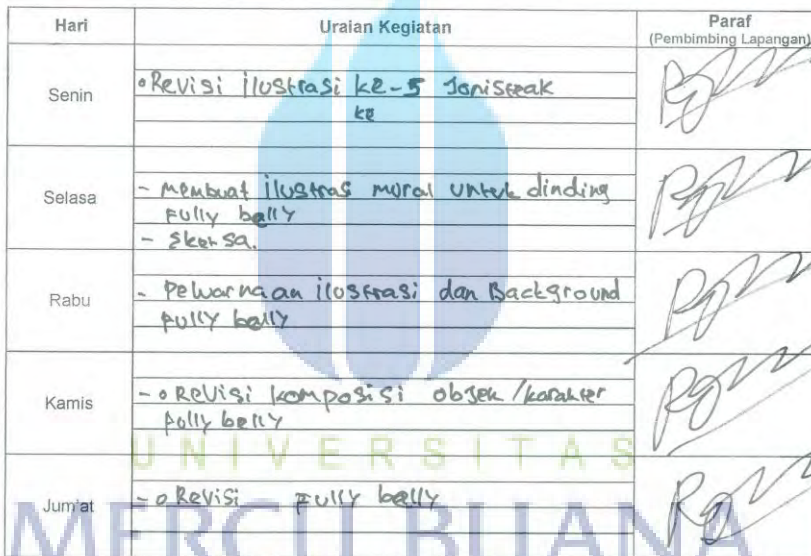 Hari Uraian Kegiatan Paraf
(Pembimbing Lapangan)
Senin
• Revisi ilustrasi ke-5 Jonisteak
ke
Selasa
- Membuat ilustras mural untuk dinding
Fully belly
- Skersa.
Rabu
- Pewarnaan ilustrasi dan Background
Fully belly
Kamis
- • Revisi komposisi objek / karakter
Fully belly
UNIVERSITAS
Jum'at
- • Revisi Fully belly
MERCU BUANA